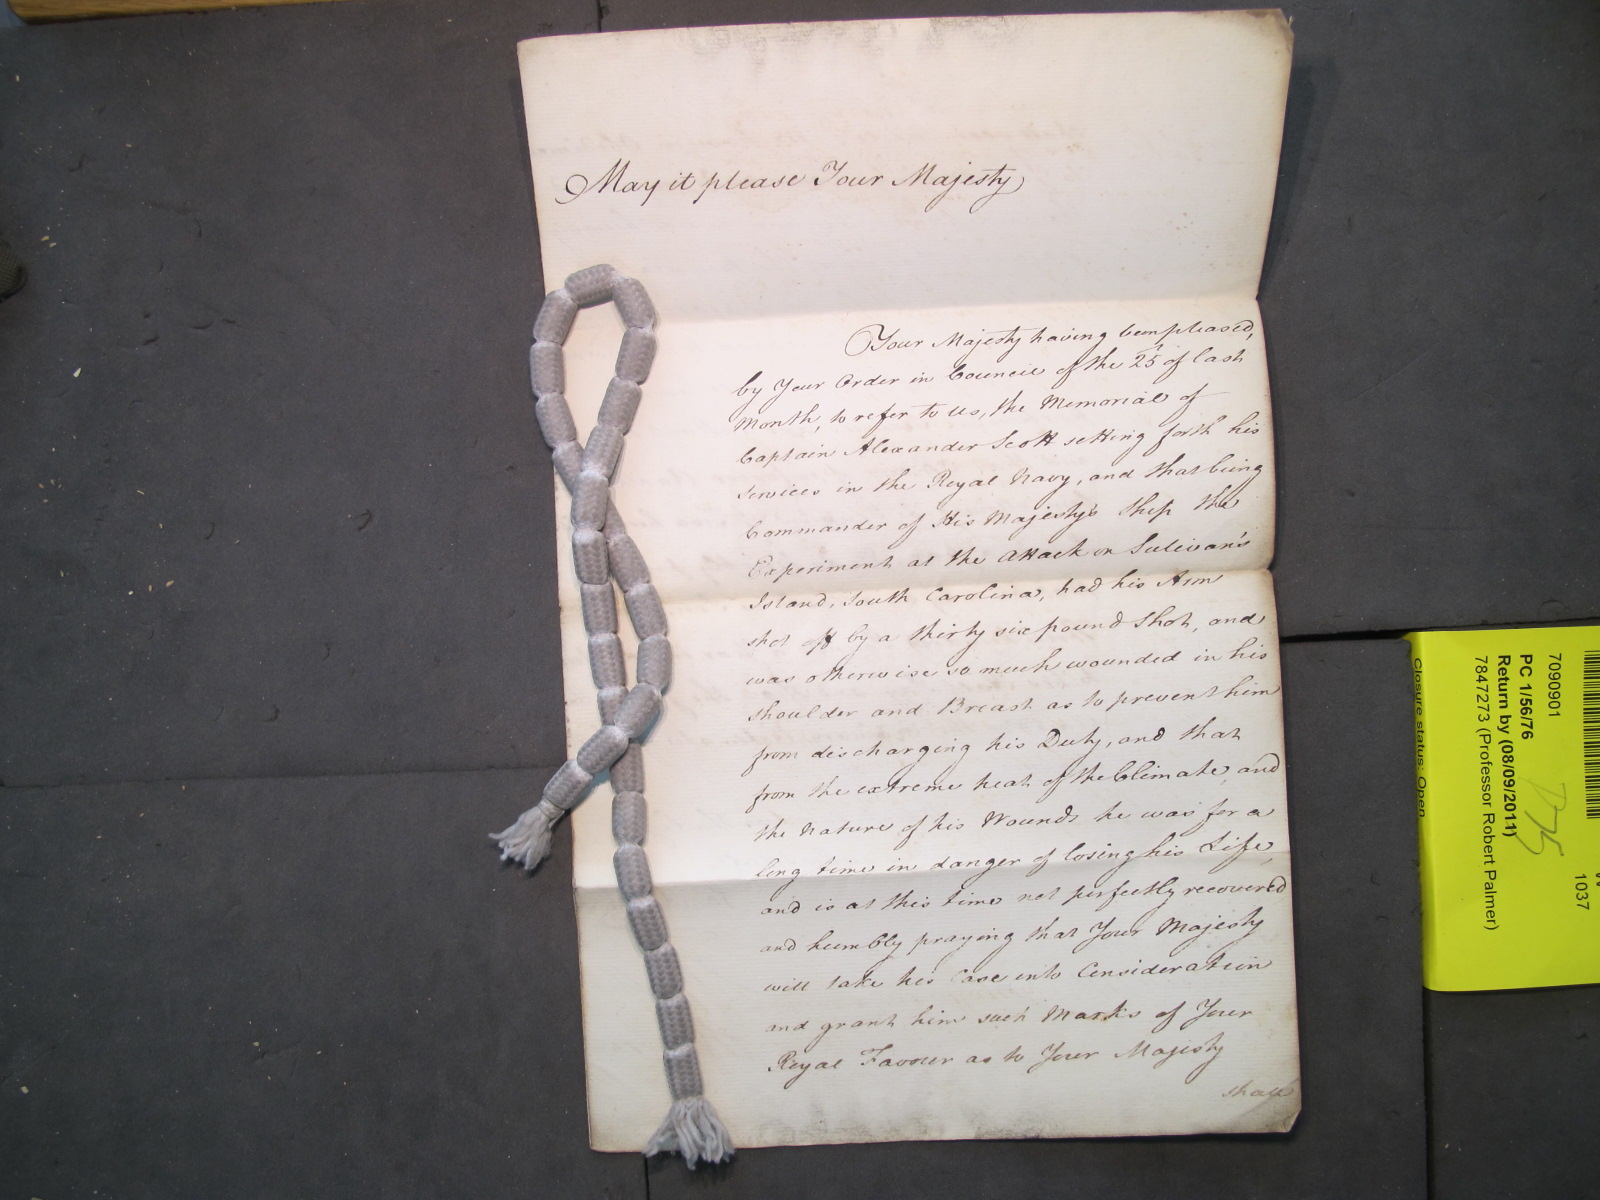 May it please Your Majesty
Your Majesty having been pleased,
by Your Order in Council of the 25th of last
Month, to refer to us, the Memorial of
Captain Alexander Scott setting forth his
services in the Royal Navy, and that being
Commander of His Majesty's Ship the
Experiment at the Attack on Sulivan's
Island, South Carolina, had his Arm
shot off by a thirty six pound Shot, and
was otherwise so much wounded in his
shoulder and Breast as to prevent him
from discharging his Duty, and that
from the extreme heat of the Climate, and
the nature of his Wounds he was for a
long time in danger of losing his Life,
and is at this time not perfectly recovered
and humbly praying that Your Majesty
will take his Case into Consideration
and grant him such Marks of Your
Royal Favour as to Your Majesty
shall
7090901
PC 1/56/76
Return by (08/09/2011)
7847273 (Professor Robert Palmer)
Closure status: Open
1037